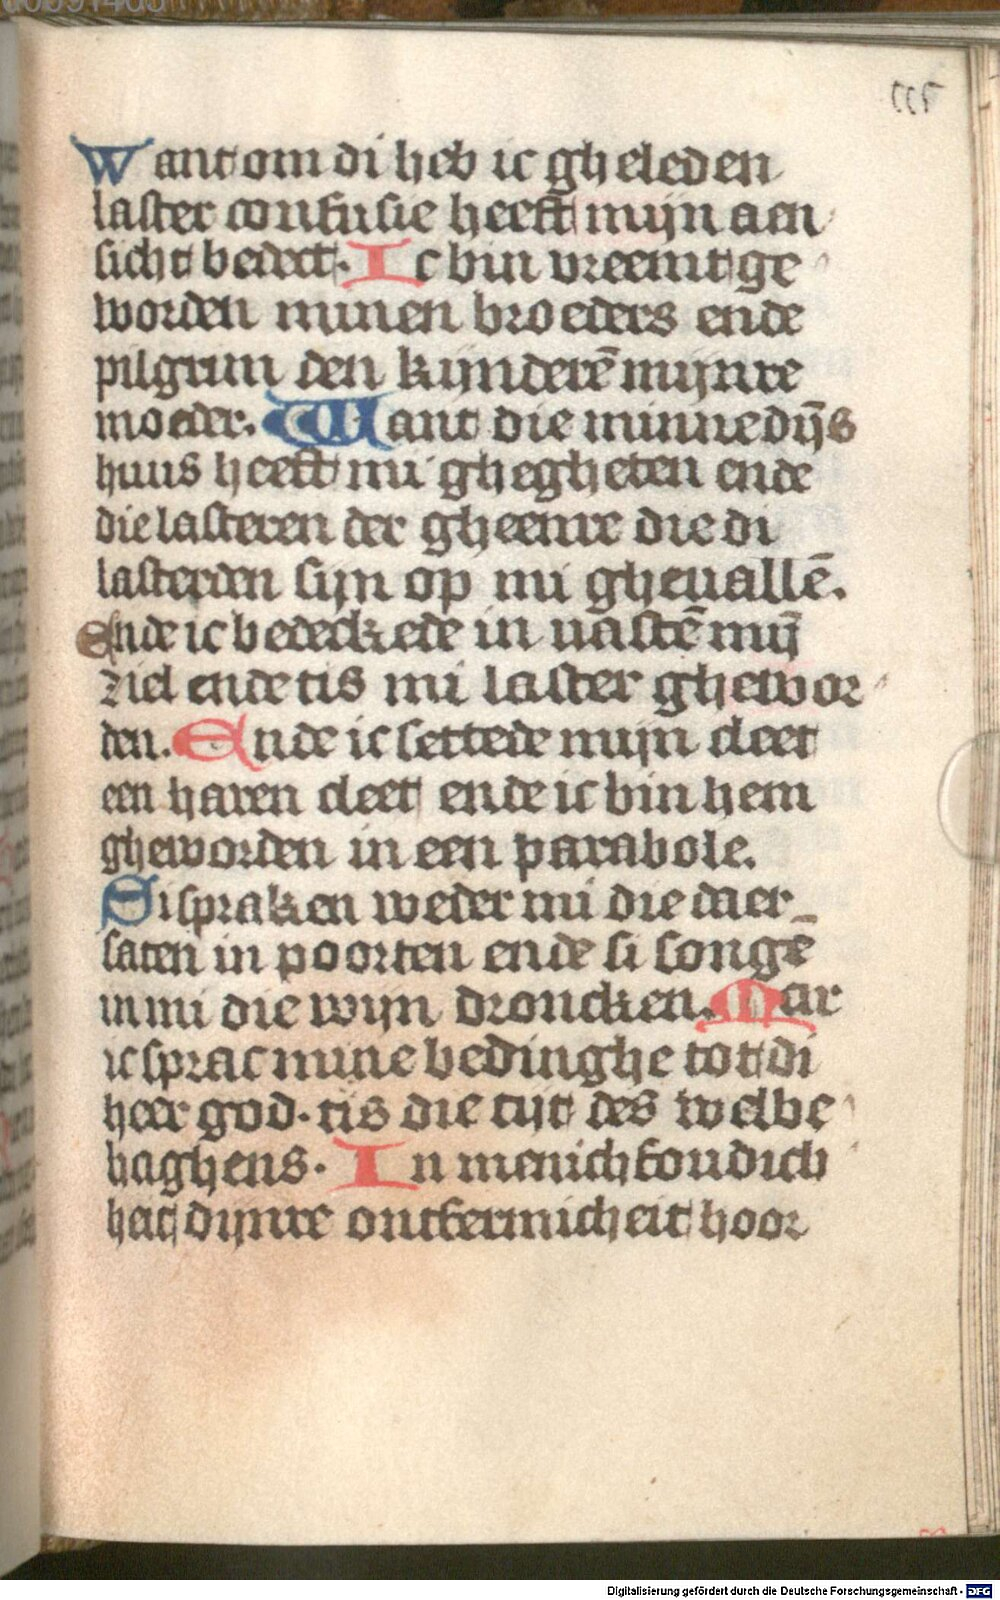 Want om di heb ic gheleden
laster confusie heeft mijn aen
sicht bedect. Ic bin vreemt ge
worden minen broeders ende
pilgrim den kijnderē mijnre
moeder. Want die minne dijs
huus heeft mi ghegheten ende
die lasteren der gheenre die di
lasterden sijn op mi gheuallē.
Ende ic bedeckede in uastē mijn
ziel ende tis mi laster ghewor
den. Ende ic settede mijn cleet
een haren cleet ende ic bin hem
gheworden in een parabole.
Si spraken weder mi die daer
saten in poorten ende si songē
in mi die wijn droncken. Mar
ic sprac mine bedinghe tot di
heer god. tis die tijt des welbe
haghens. In menichfoudich
heit dijnre ontfermicheit hoor
Digitalisierung gefördert durch die Deutsche Forschungsgemeinschaft - DFG